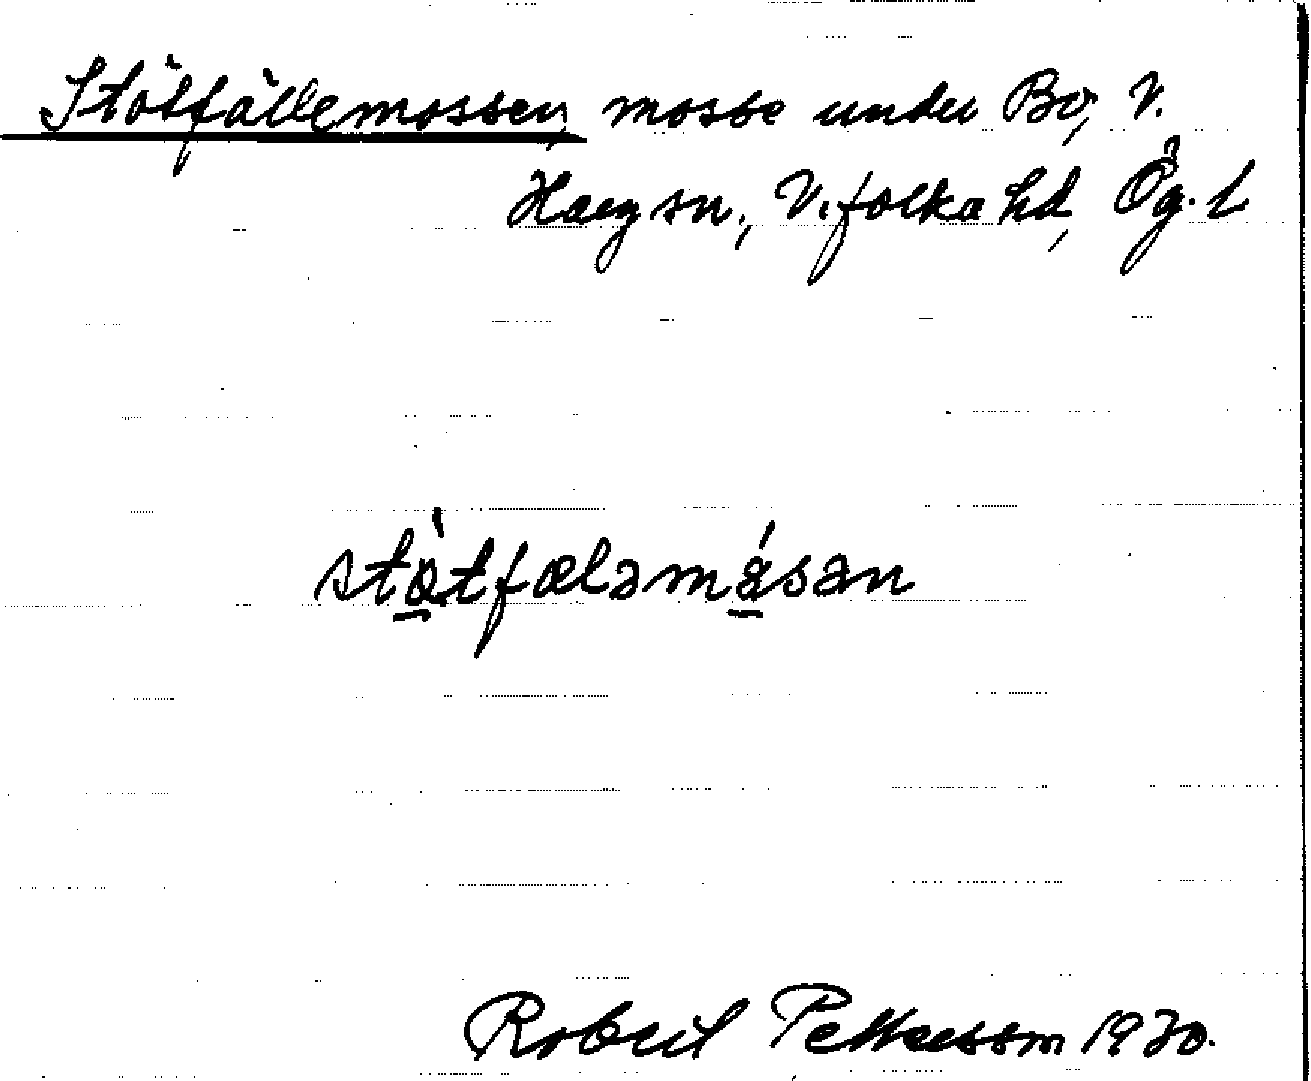 Stötfällemossen, mosse under Bo, V.
Harg sn, Vifolka hd, Ög. l
stö̀tfæləmásan
Robert Pettersson 1930.